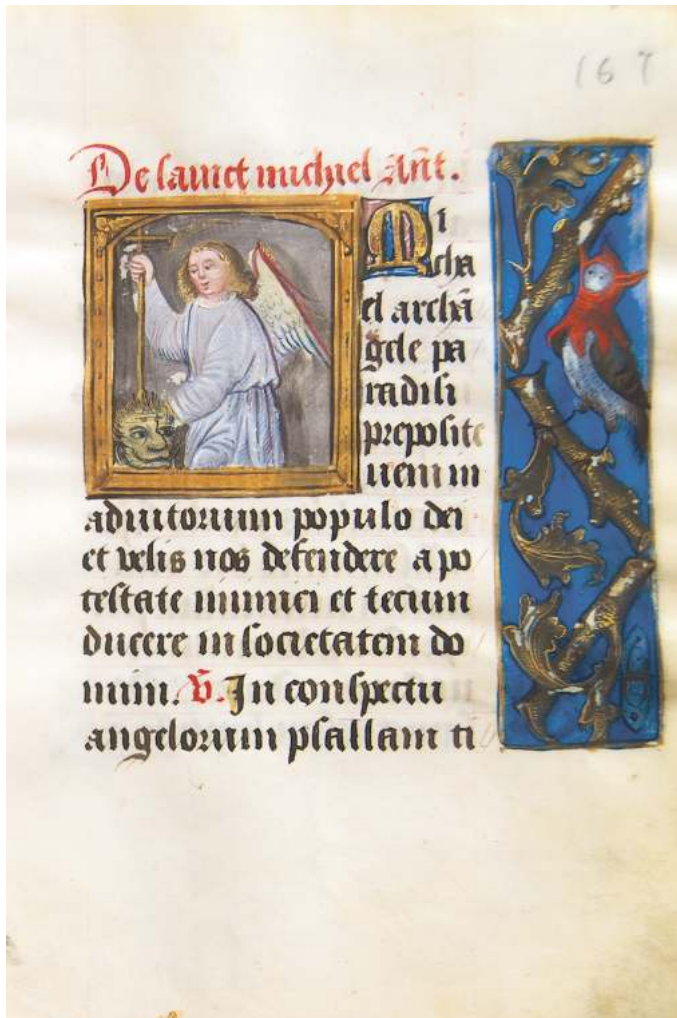 167
De sainct michiel Ant̄.
Mi
cha
el archā
gele pa
radisi
preposite
veni in
adiutorium populo dei
et velis nos defendere a po
testate inimici et tecum
ducere in societatem do
mini. V̄. In conspectu
angelorum psallam ti